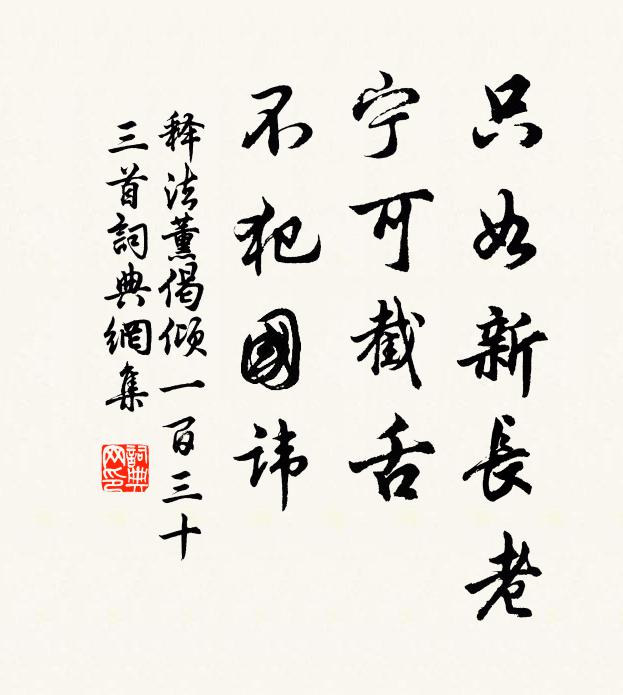 只如新長老
宁可截舌
不犯國讳
释法薰偈倾一百三十
三首詞典網集
詞典网印